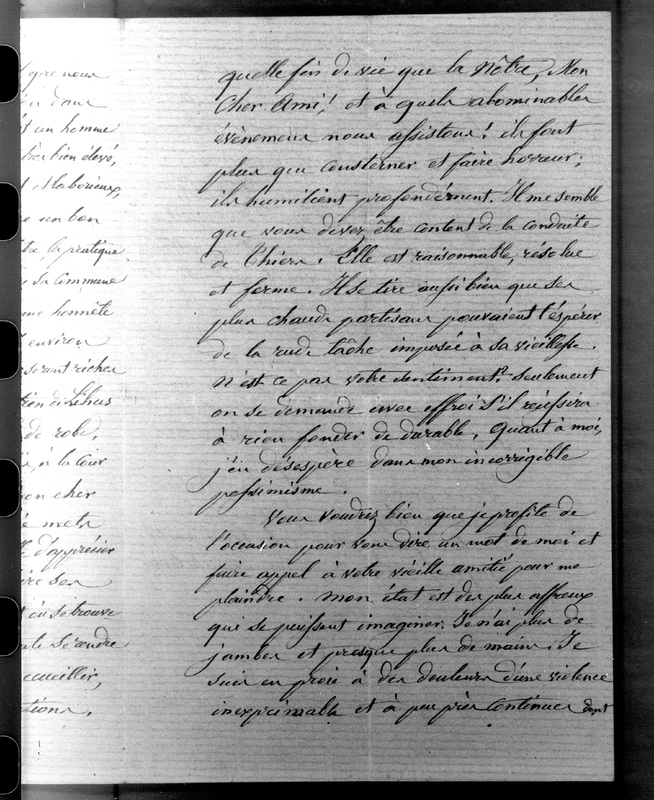 que nous
dans
un homme
bien élevé,
laborieux,
un bon
la pratique
sa Commune
une honnête
environ
seront riches
de robe,
à la Cour
mon cher
mets
d'apprécier
son
se trouve
Sérandre
recueillir,
quelle fin de vie que la Nôtre, Mon
Cher Ami! et à quels abominables
évènemens nous assistons! ils font
plus que consterner et faire horreur;
ils humilient profondément. Il me semble
que vous devez être content de la conduite
de Thiers. Elle est raisonnable, résolue
et ferme. Il se tire aussi bien que ses
plus chauds partisans pouvaient l'espérer
de la rude tâche imposée à sa vieillesse.
n'est ce pas votre sentiment? Seulement
on se demande avec effroi s'il réussira
à rien fonder de durable. Quant à moi,
j'en désespère dans mon incorrigible
pessimisme.
Vous voudrez bien que je profite de
l'occasion pour vous dire un mot de moi et
faire appel à votre vieille amitié pour me
plaindre. Mon état est des plus affreux
qui se puissent imaginer. Je n'ai plus de
jambes et presque plus de mains. Je
suis en proie à des douleurs d'une violence
inexprimable et à peu près continues dont